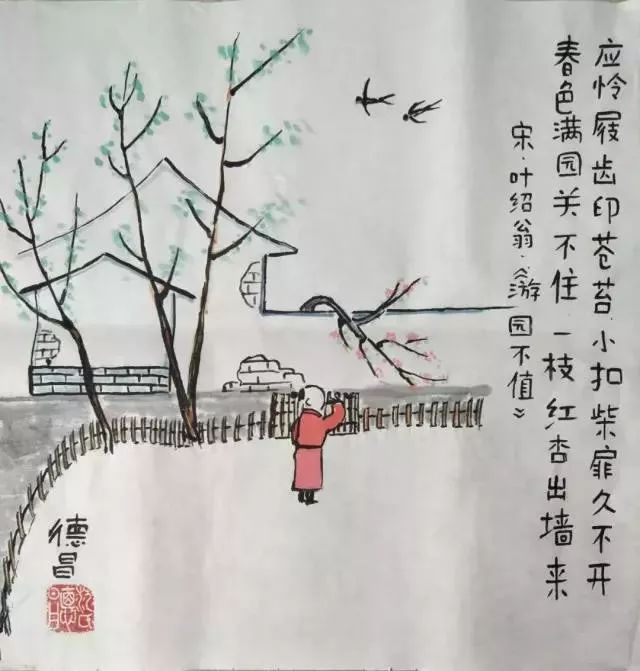 应怜屐齿印苍苔小扣柴扉久不开
春色满园关不住一枝红杏出墙来
宋·叶绍翁·《游园不值》
德昌